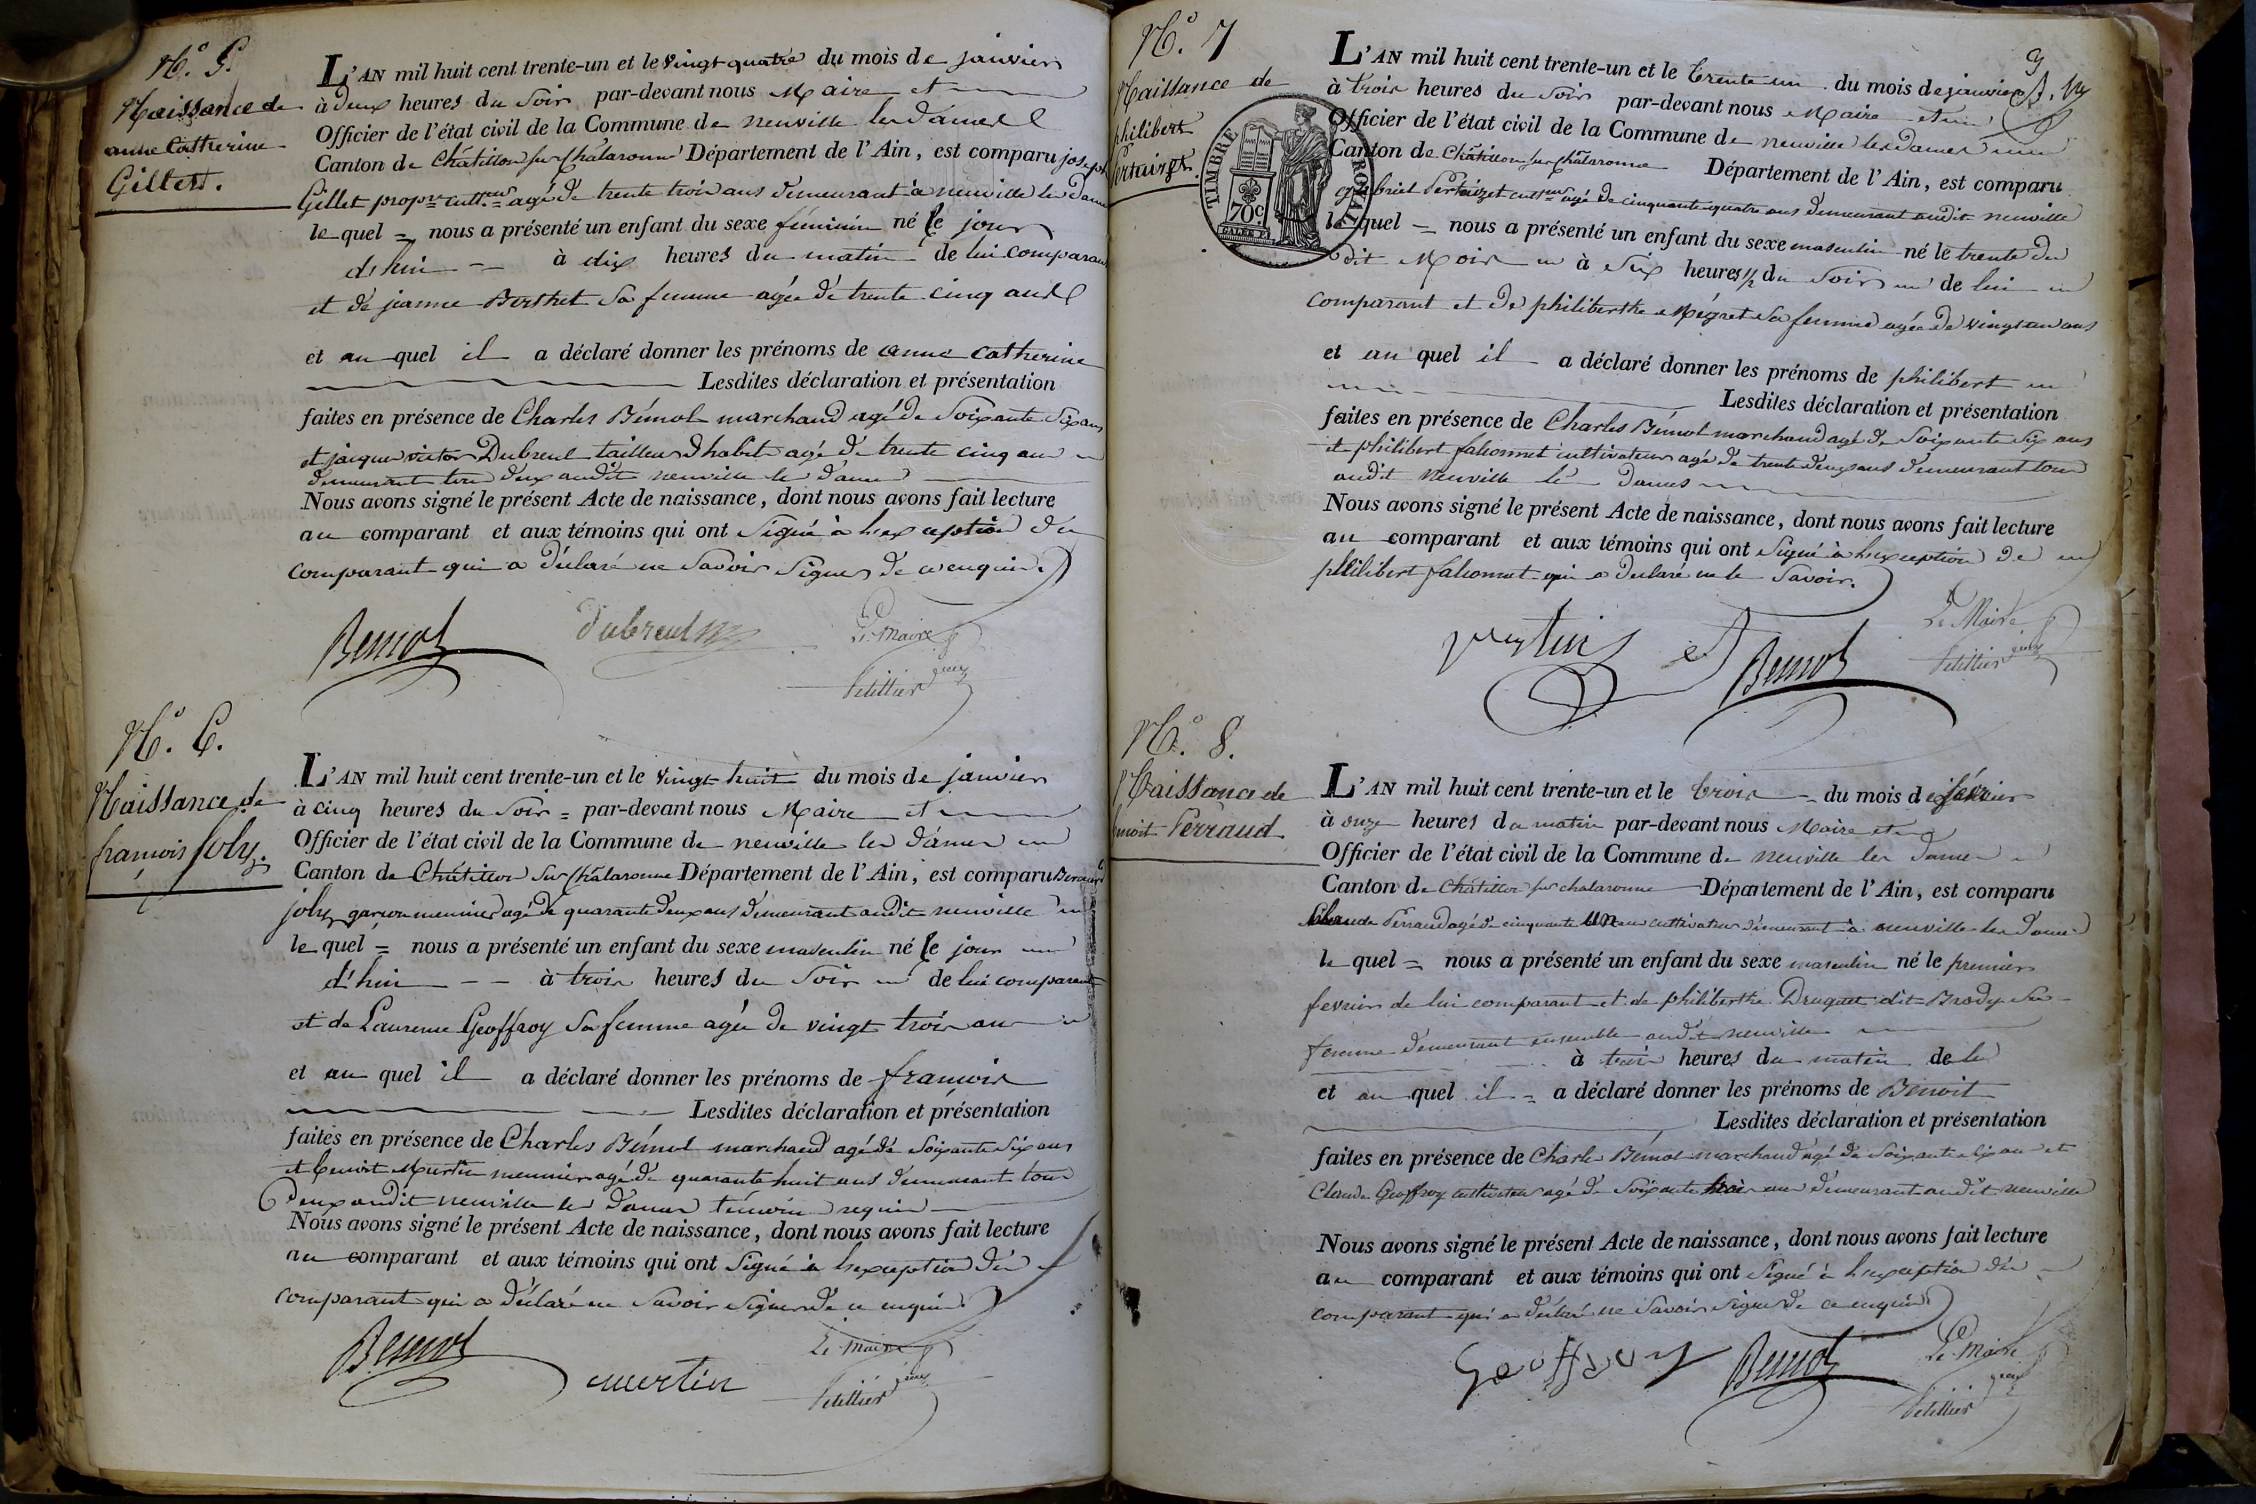 N.º 5.
Naissance de
anne Catherine
Gillet.
L'AN mil huit cent trente-un et le vingt quatre du mois de janvier
à deux heures du soir par-devant nous Maire et
Officier de l'état civil de la Commune de neuville les dames
Canton de Châtillon sur Chalaronne Département de l'Ain, est comparu joseph
Gillet propre cultr agé de trente trois ans demeurant à neuville les dames
le quel = nous a présenté un enfant du sexe féminin né le jour
d'hui - à dix heures du matin de lui comparant
et de jeanne Berthet sa femme agée de trente cinq ans
et au quel il a déclaré donner les prénoms de anne Catherine
Lesdites déclaration et présentation
faites en présence de Charles Bémol marchand agé de soixante six ans
et jacque victor Dubreul tailleur d'habits agé de trente cinq ans
demeurant tous deux audit neuville les dames
Nous avons signé le présent Acte de naissance, dont nous avons fait lecture
au comparant et aux témoins qui ont signé à l'exception du
comparant qui a déclaré ne savoir signer de ce enquis.
Bemol dubreul Le Maire
Pelillier
N.º 6.
Naissance de
françois Joly.
L'AN mil huit cent trente-un et le vingt huit du mois de janvier
à cinq heures du soir = par-devant nous Maire et
Officier de l'état civil de la Commune de neuville les dames
Canton de Châtillon sur Chalaronne Département de l'Ain, est comparu Bernard
joly garçon meunier agé de quarante deux ans demeurant audit neuville
le quel = nous a présenté un enfant du sexe masculin né le jour
d'hui - - à trois heures du soir de lui comparant
et de Laurence Geoffroy sa femme agée de vingt trois ans
et au quel il a déclaré donner les prénoms de françois
Lesdites déclaration et présentation
faites en présence de Charles Bémol marchand agé de soixante six ans
et benoit Martin meunier agé de quarante huit ans demeurant tous
deux audit neuville les dames témoins requis
Nous avons signé le présent Acte de naissance, dont nous avons fait lecture
au comparant et aux témoins qui ont signé à l'exception du
comparant qui a déclaré ne savoir signer de ce enquis.
Bemol martin Le Maire
Pelillier
N.º 7
Naissance de
philibert
Pertuizet.
TIMBRE ROYAL
70c
3
L'AN mil huit cent trente-un et le trente un du mois de janvier
à trois heures du soir par-devant nous Maire et
Officier de l'état civil de la Commune de neuville les dames
Canton de Châtillon sur Chalaronne Département de l'Ain, est comparu
gabriel Pertuizet cultr agé de cinquante quatre ans demeurant audit neuville
le quel = nous a présenté un enfant du sexe masculin né le trente du
dit Mois à six heures 1/2 du soir de lui
comparant et de philiberthe Mégret sa femme agée de vingt un ans
et au quel il a déclaré donner les prénoms de philibert
Lesdites déclaration et présentation
faites en présence de Charles Bémol marchand agé de soixante six ans
et philibert falconnet cultivateur agé de trente deux ans demeurant tous
audit neuville les dames
Nous avons signé le présent Acte de naissance, dont nous avons fait lecture
au comparant et aux témoins qui ont signé à l'exception de
philibert falconnet qui a déclaré ne le savoir.
Bemol Le Maire
Pelillier
N.º 8.
Naissance de
benoit Perraud.
L'AN mil huit cent trente-un et le trois du mois de février
à onze heures du matin par-devant nous Maire et
Officier de l'état civil de la Commune de neuville les dames
Canton de Châtillon sur chalaronne Département de l'Ain, est comparu
Claude Perraud agé de cinquante un ans cultivateur demeurant à neuville les dames
le quel = nous a présenté un enfant du sexe masculin né le premier
fevrier de lui comparant et de philiberthe Druguet dit Brady sa
femme demeurant ensemble audit neuville
à trois heures du matin de lui
et au quel il = a déclaré donner les prénoms de Benoit
Lesdites déclaration et présentation
faites en présence de Charles Bémol marchand agé de soixante six ans et
Claude Geoffroy cultivateur agé de soixante trois ans demeurant audit neuville
Nous avons signé le présent Acte de naissance, dont nous avons fait lecture
au comparant et aux témoins qui ont signé à l'exception du
comparant qui a déclaré ne savoir signer de ce enquis
Geoffray Bemol Le Maire
Pelillier